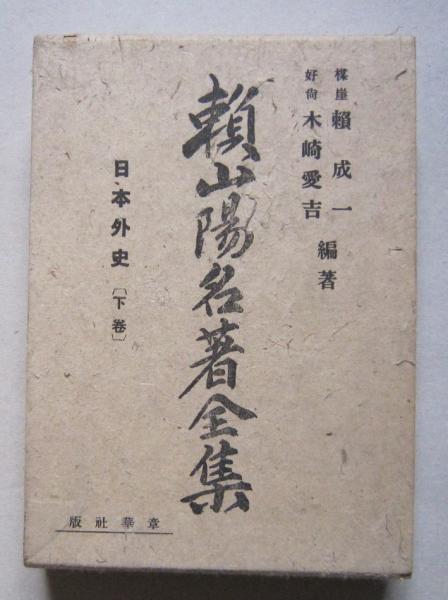 楳崖 賴成一
好尚 木崎愛吉
編著
賴山陽名著全集
日本外史〔下卷〕
章華社版